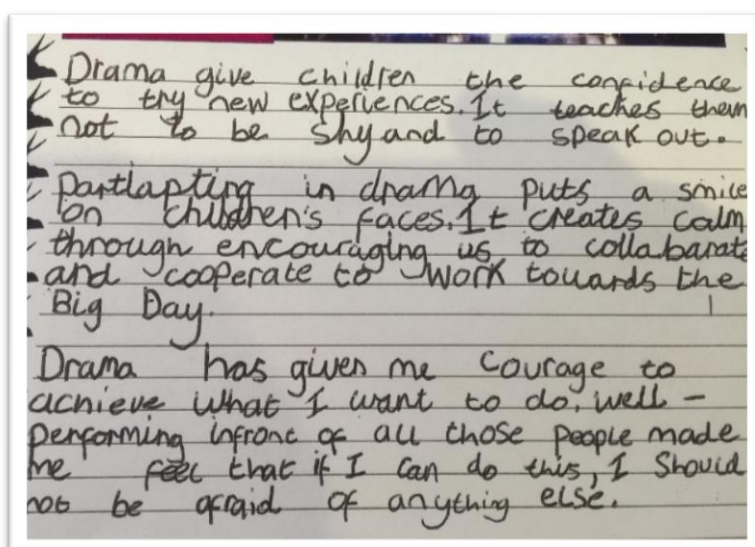 Drama give children the confidence
to try new experiences. It teaches them
not to be shy and to speak out.
Partlapting in drama puts a smile
on children's faces. It creates calm
through encouraging us to collabarate
and cooperate to work towards the
Big Day.
Drama has given me courage to
achieve what I want to do. Well -
performing infront of all those people made
me feel that if I can do this, I should
not be afraid of anything else.